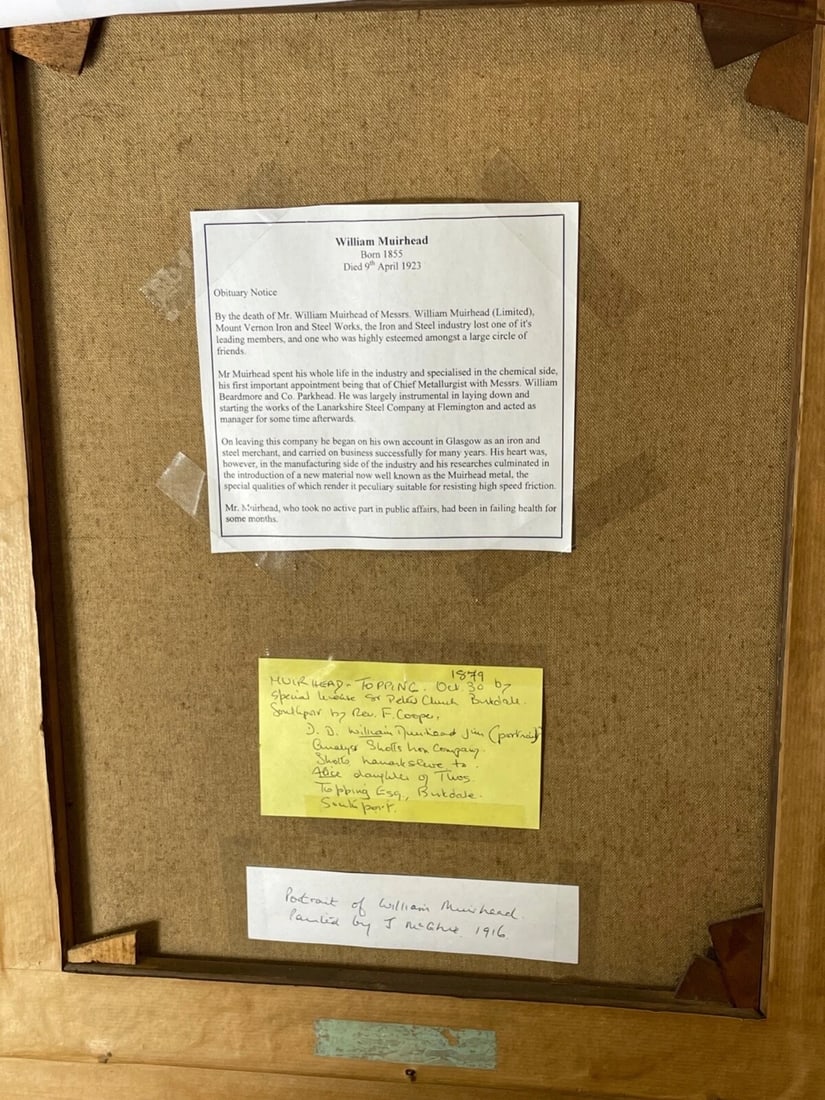 William Muirhead
Born 1855
Died 9th April 1923
Obituary Notice
By the death of Mr. William Muirhead of Messrs. William Muirhead (Limited),
Mount Vernon Iron and Steel Works, the Iron and Steel industry lost one of it's
leading members, and one who was highly esteemed amongst a large circle of
friends.
Mr Muirhead spent his whole life in the industry and specialised in the chemical side,
his first important appointment being that of Chief Metallurgist with Messrs. William
Beardmore and Co. Parkhead. He was largely instrumental in laying down and
starting the works of the Lanarkshire Steel Company at Flemington and acted as
manager for some time afterwards.
On leaving this company he began on his own account in Glasgow as an iron and
steel merchant, and carried on business successfully for many years. His heart was,
however, in the manufacturing side of the industry and his researches culminated in
the introduction of a new material now well known as the Muirhead metal, the
special qualities of which render it peculiary suitable for resisting high speed friction.
Mr. Muirhead, who took no active part in public affairs, had been in failing health for
some months.
1879
MUIRHEAD - TOPPING. Oct 30 by
Special license St Peters Church Birkdale.
Southport by Rev. F. Cooper,
J. D. William Muirhead Jun (portrait)
Analyst Shotts Iron Company.
Shotts Lanarkshire to
Alice daughter of Thos.
Topping Esq., Birkdale.
Southport.
Portrait of William Muirhead.
Painted by J 1916